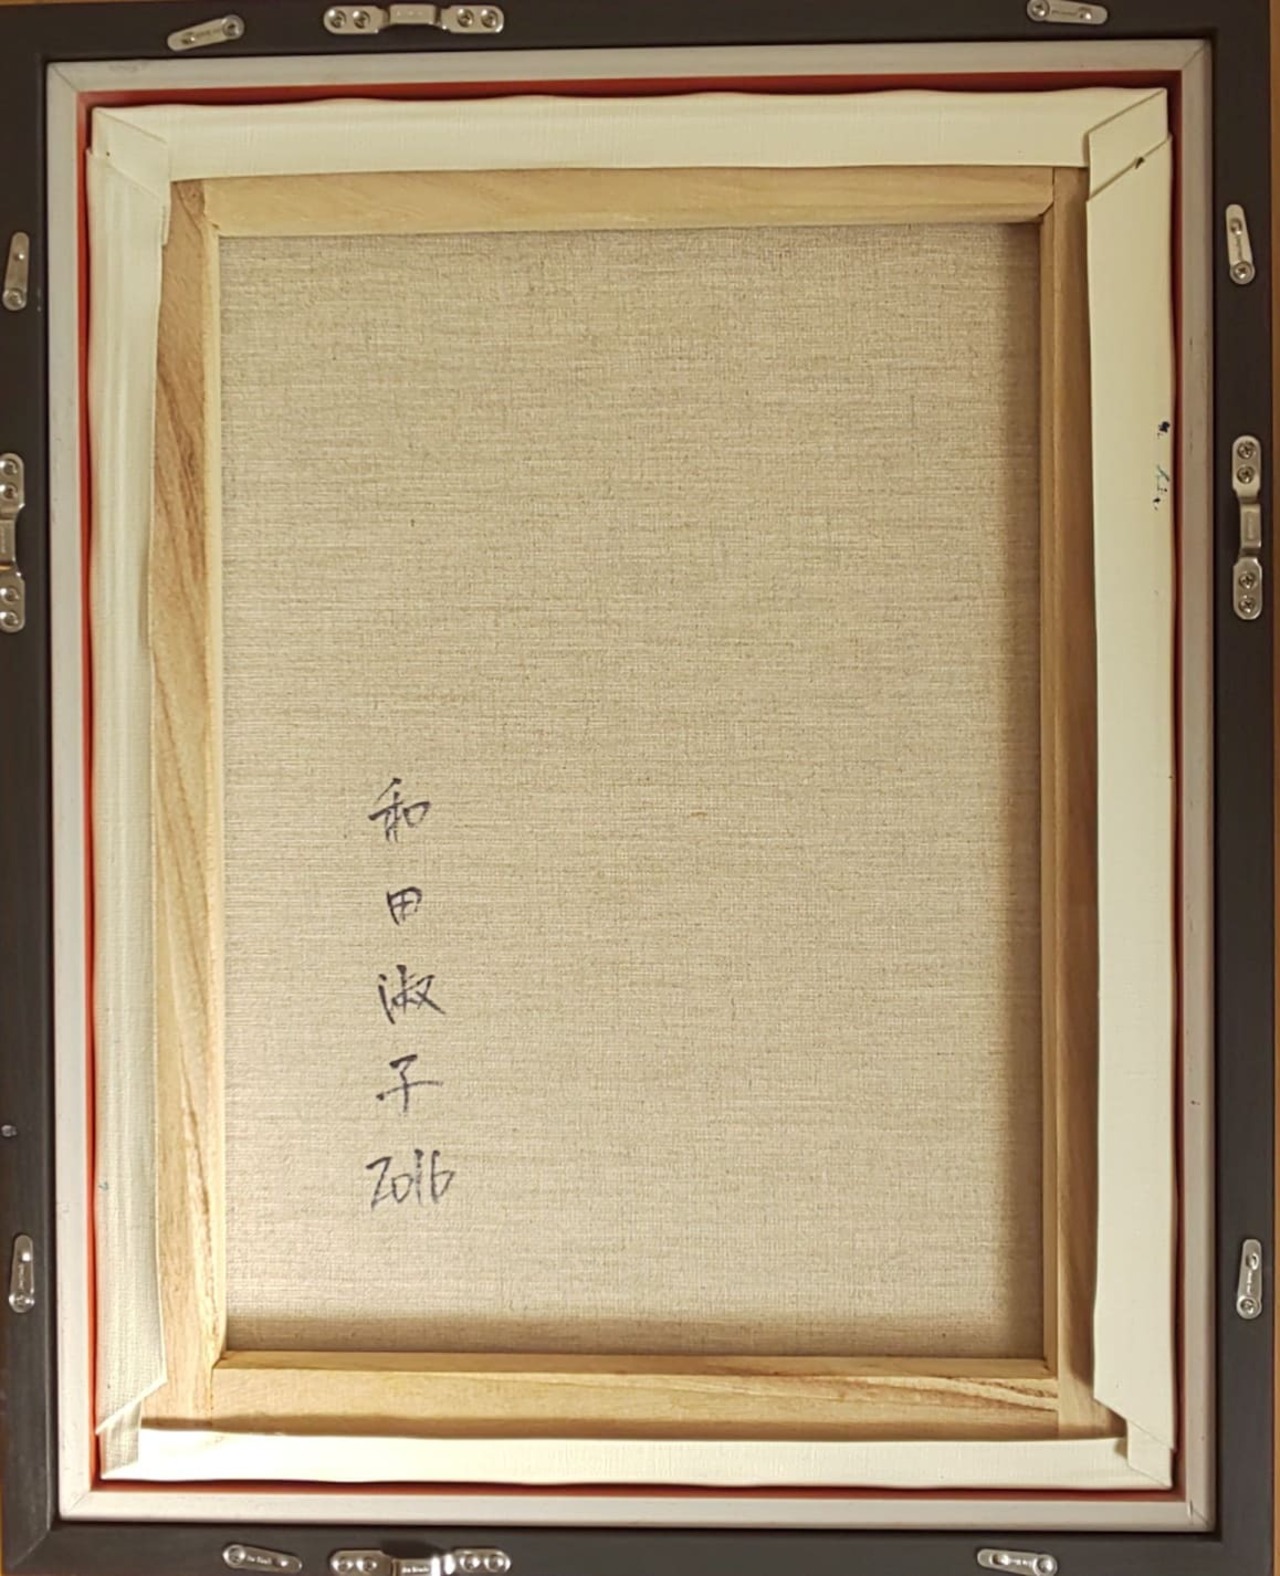 和田淑子
2016